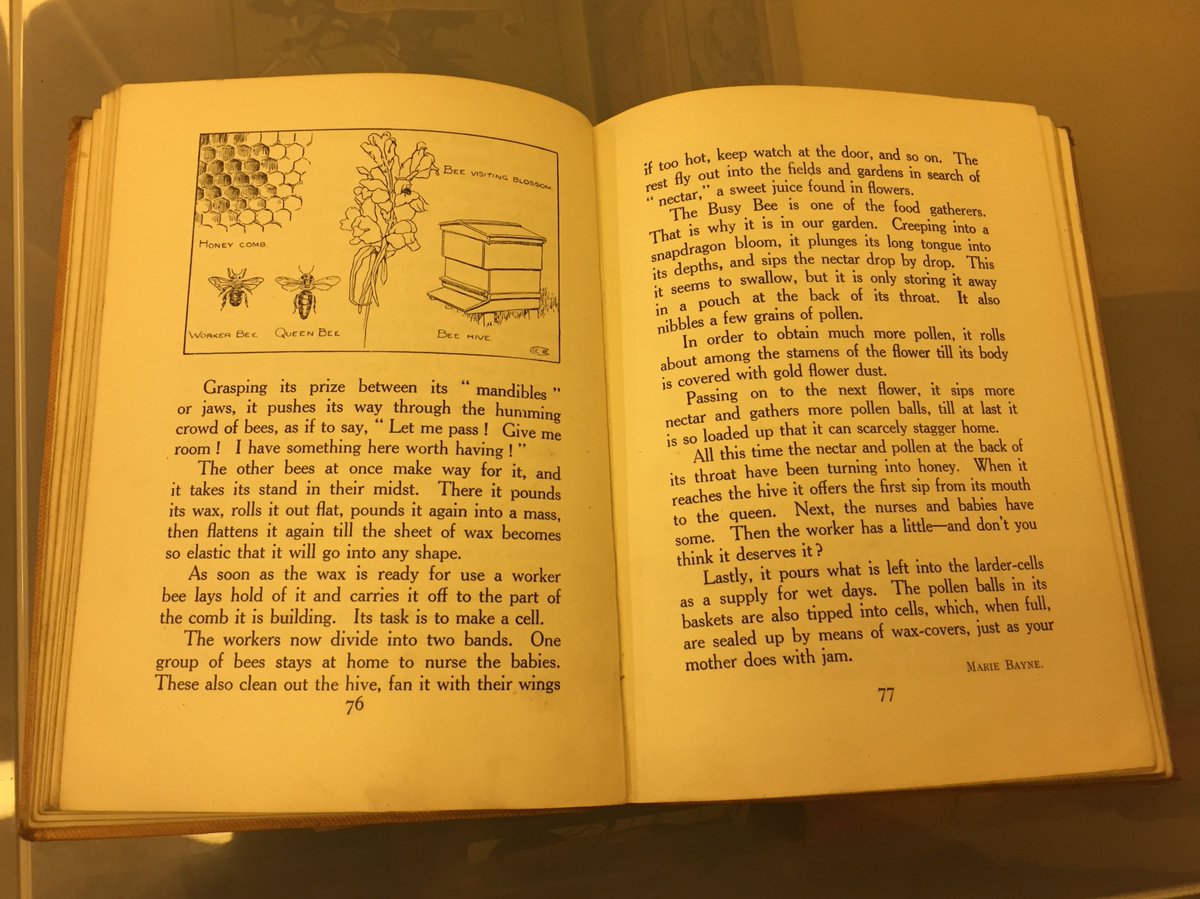 BEE VISITING BLOSSOM.
HONEY COMB.
WORKER BEE
QUEEN BEE
BEE HIVE.
Grasping its prize between its “ mandibles ”
or jaws, it pushes its way through the humming
crowd of bees, as if to say, “ Let me pass ! Give me
room ! I have something here worth having ! ”
The other bees at once make way for it, and
it takes its stand in their midst. There it pounds
its wax, rolls it out flat, pounds it again into a mass,
then flattens it again till the sheet of wax becomes
so elastic that it will go into any shape.
As soon as the wax is ready for use a worker
bee lays hold of it and carries it off to the part of
the comb it is building. Its task is to make a cell.
The workers now divide into two bands. One
group of bees stays at home to nurse the babies.
These also clean out the hive, fan it with their wings
76
if too hot, keep watch at the door, and so on. The
rest fly out into the fields and gardens in search of
“ nectar,” a sweet juice found in flowers.
The Busy Bee is one of the food gatherers.
That is why it is in our garden. Creeping into a
snapdragon bloom, it plunges its long tongue into
its depths, and sips the nectar drop by drop. This
it seems to swallow, but it is only storing it away
in a pouch at the back of its throat. It also
nibbles a few grains of pollen.
In order to obtain much more pollen, it rolls
about among the stamens of the flower till its body
is covered with gold flower dust.
Passing on to the next flower, it sips more
nectar and gathers more pollen balls, till at last it
is so loaded up that it can scarcely stagger home.
All this time the nectar and pollen at the back of
its throat have been turning into honey. When it
reaches the hive it offers the first sip from its mouth
to the queen. Next, the nurses and babies have
some. Then the worker has a little—and don’t you
think it deserves it ?
Lastly, it pours what is left into the larder-cells
as a supply for wet days. The pollen balls in its
baskets are also tipped into cells, which, when full,
are sealed up by means of wax-covers, just as your
mother does with jam.
MARIE BAYNE.
77